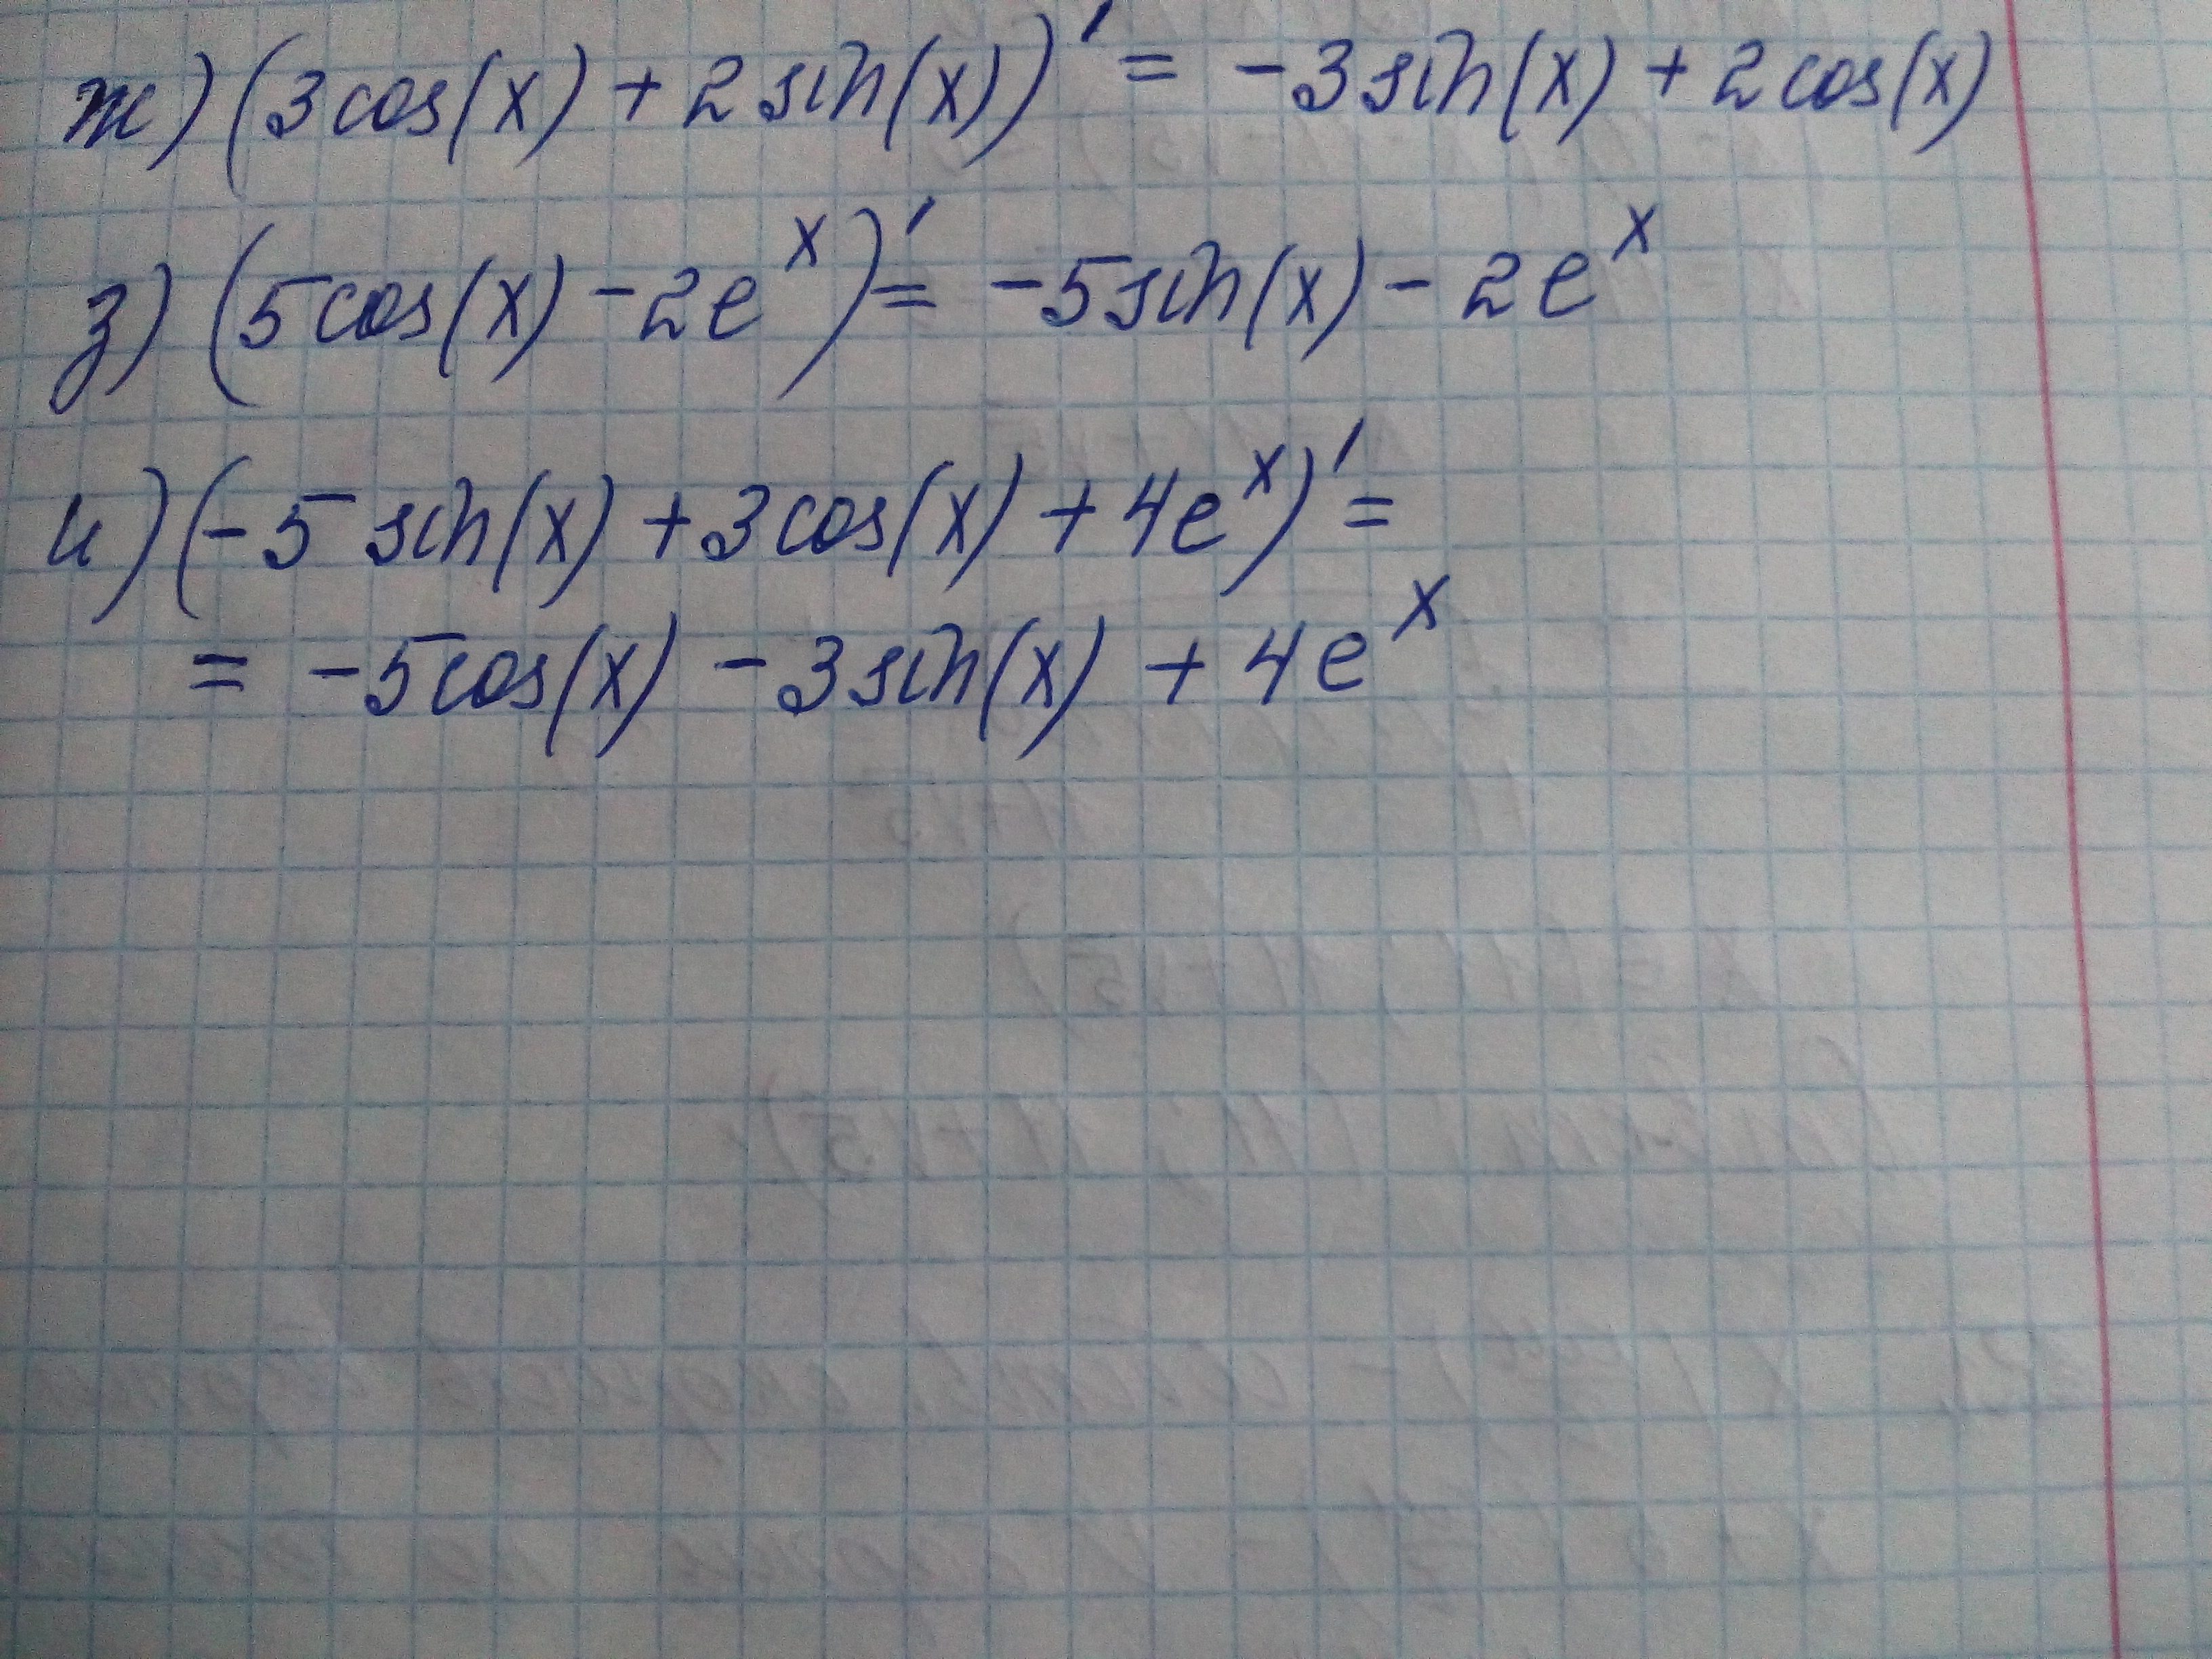 ж) (3cos(x) + 2sin(x))' = -3sin(x) + 2cos(x)
з) (5cos(x) - 2e^x)' = -5sin(x) - 2e^x
и) (-5sin(x) + 3cos(x) + 4e^x)' =
= -5cos(x) - 3sin(x) + 4e^x